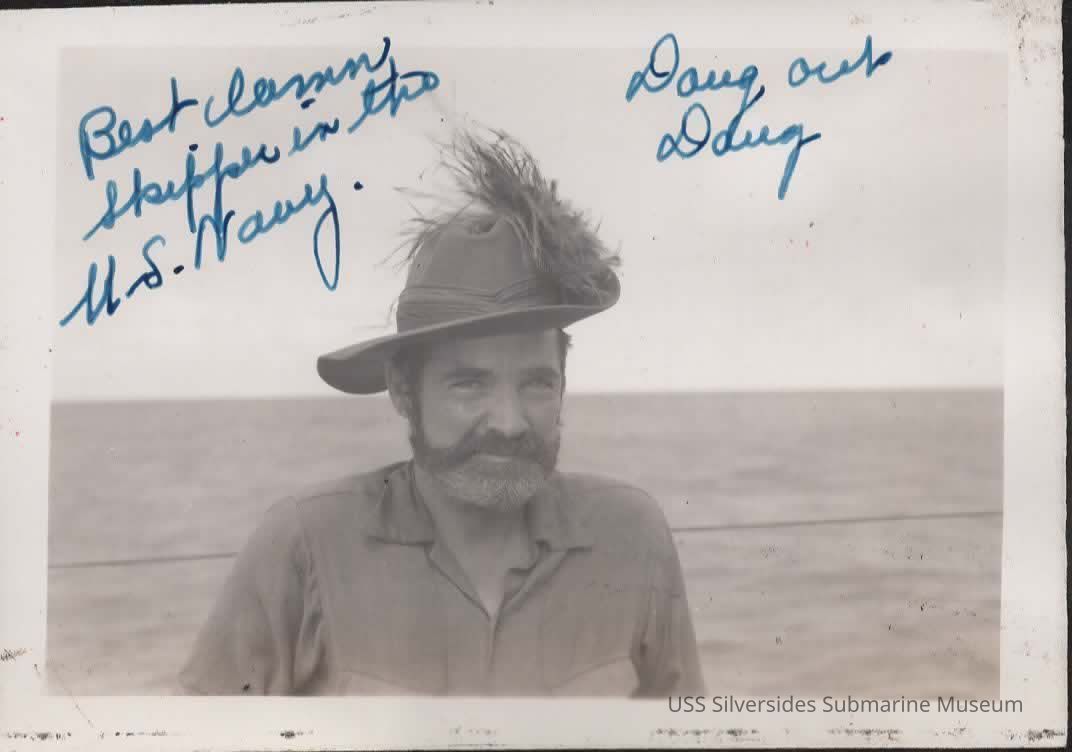 Best damn
skipper in the
U.S. Navy.
Doug out
Doug
USS Silversides Submarine Museum